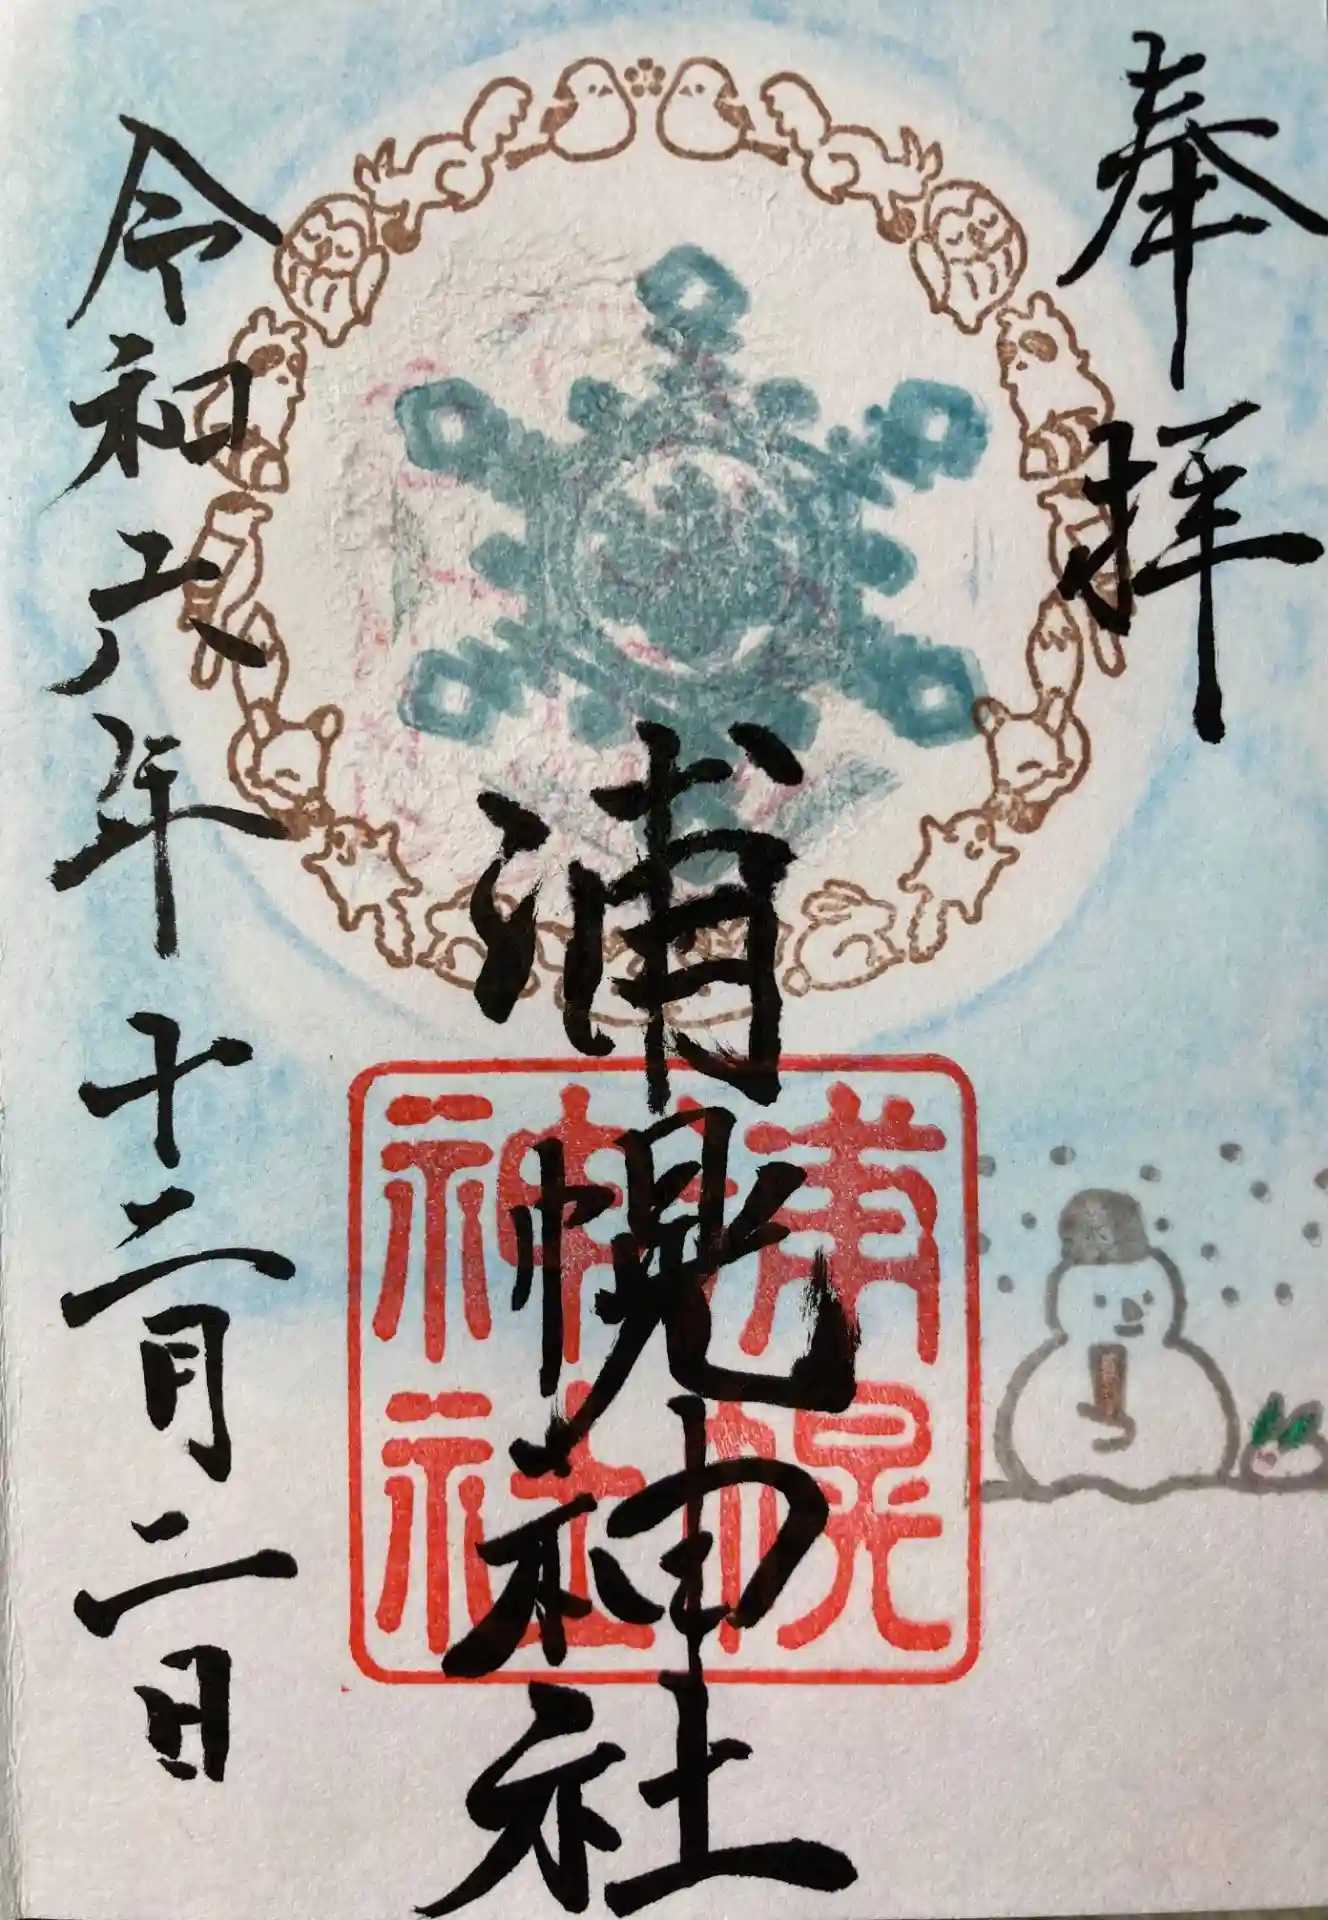 奉拝
浦幌神社
浦幌
神社
令和六年十二月二日